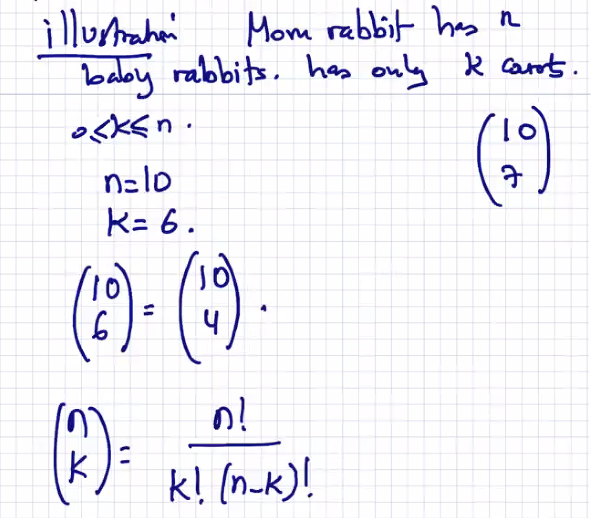 illustration Mom rabbit has n
baby rabbits. has only k carots.
0<k≤n.
(10 7)
n=10
k=6.
(10 6) = (10 4).
(n k) = n! / k! (n-k)!